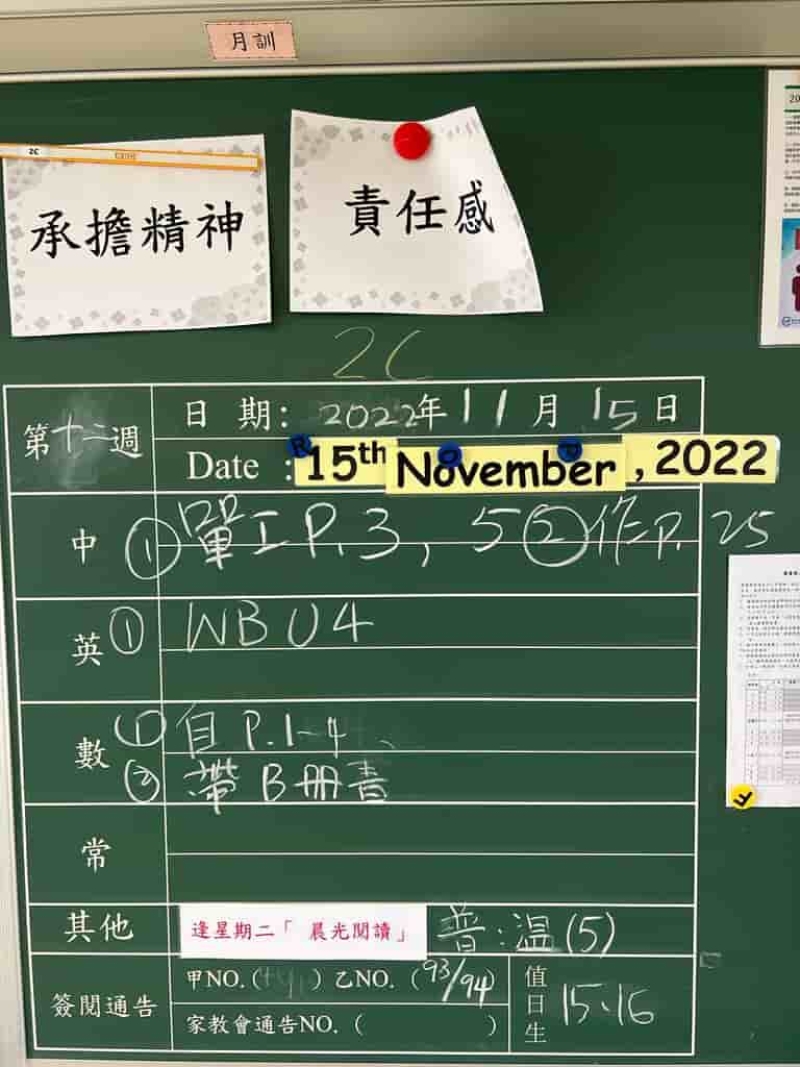 月訓
2C
承擔精神
責任感
2C
第十二週
日 期: 2022年11月15日
Date : 15th November, 2022
中 ① 單工 P.3, 5 ② 作P. 25
英 ① WB U4
數 ① 自 P.1-4、
② 帶 B 冊書
常
其他 逢星期二「 晨光閱讀 」 普:溫(5)
簽閱通告 甲NO.( ) 乙NO. (93/94)
家教會通告NO. ( )
值日生 15、16